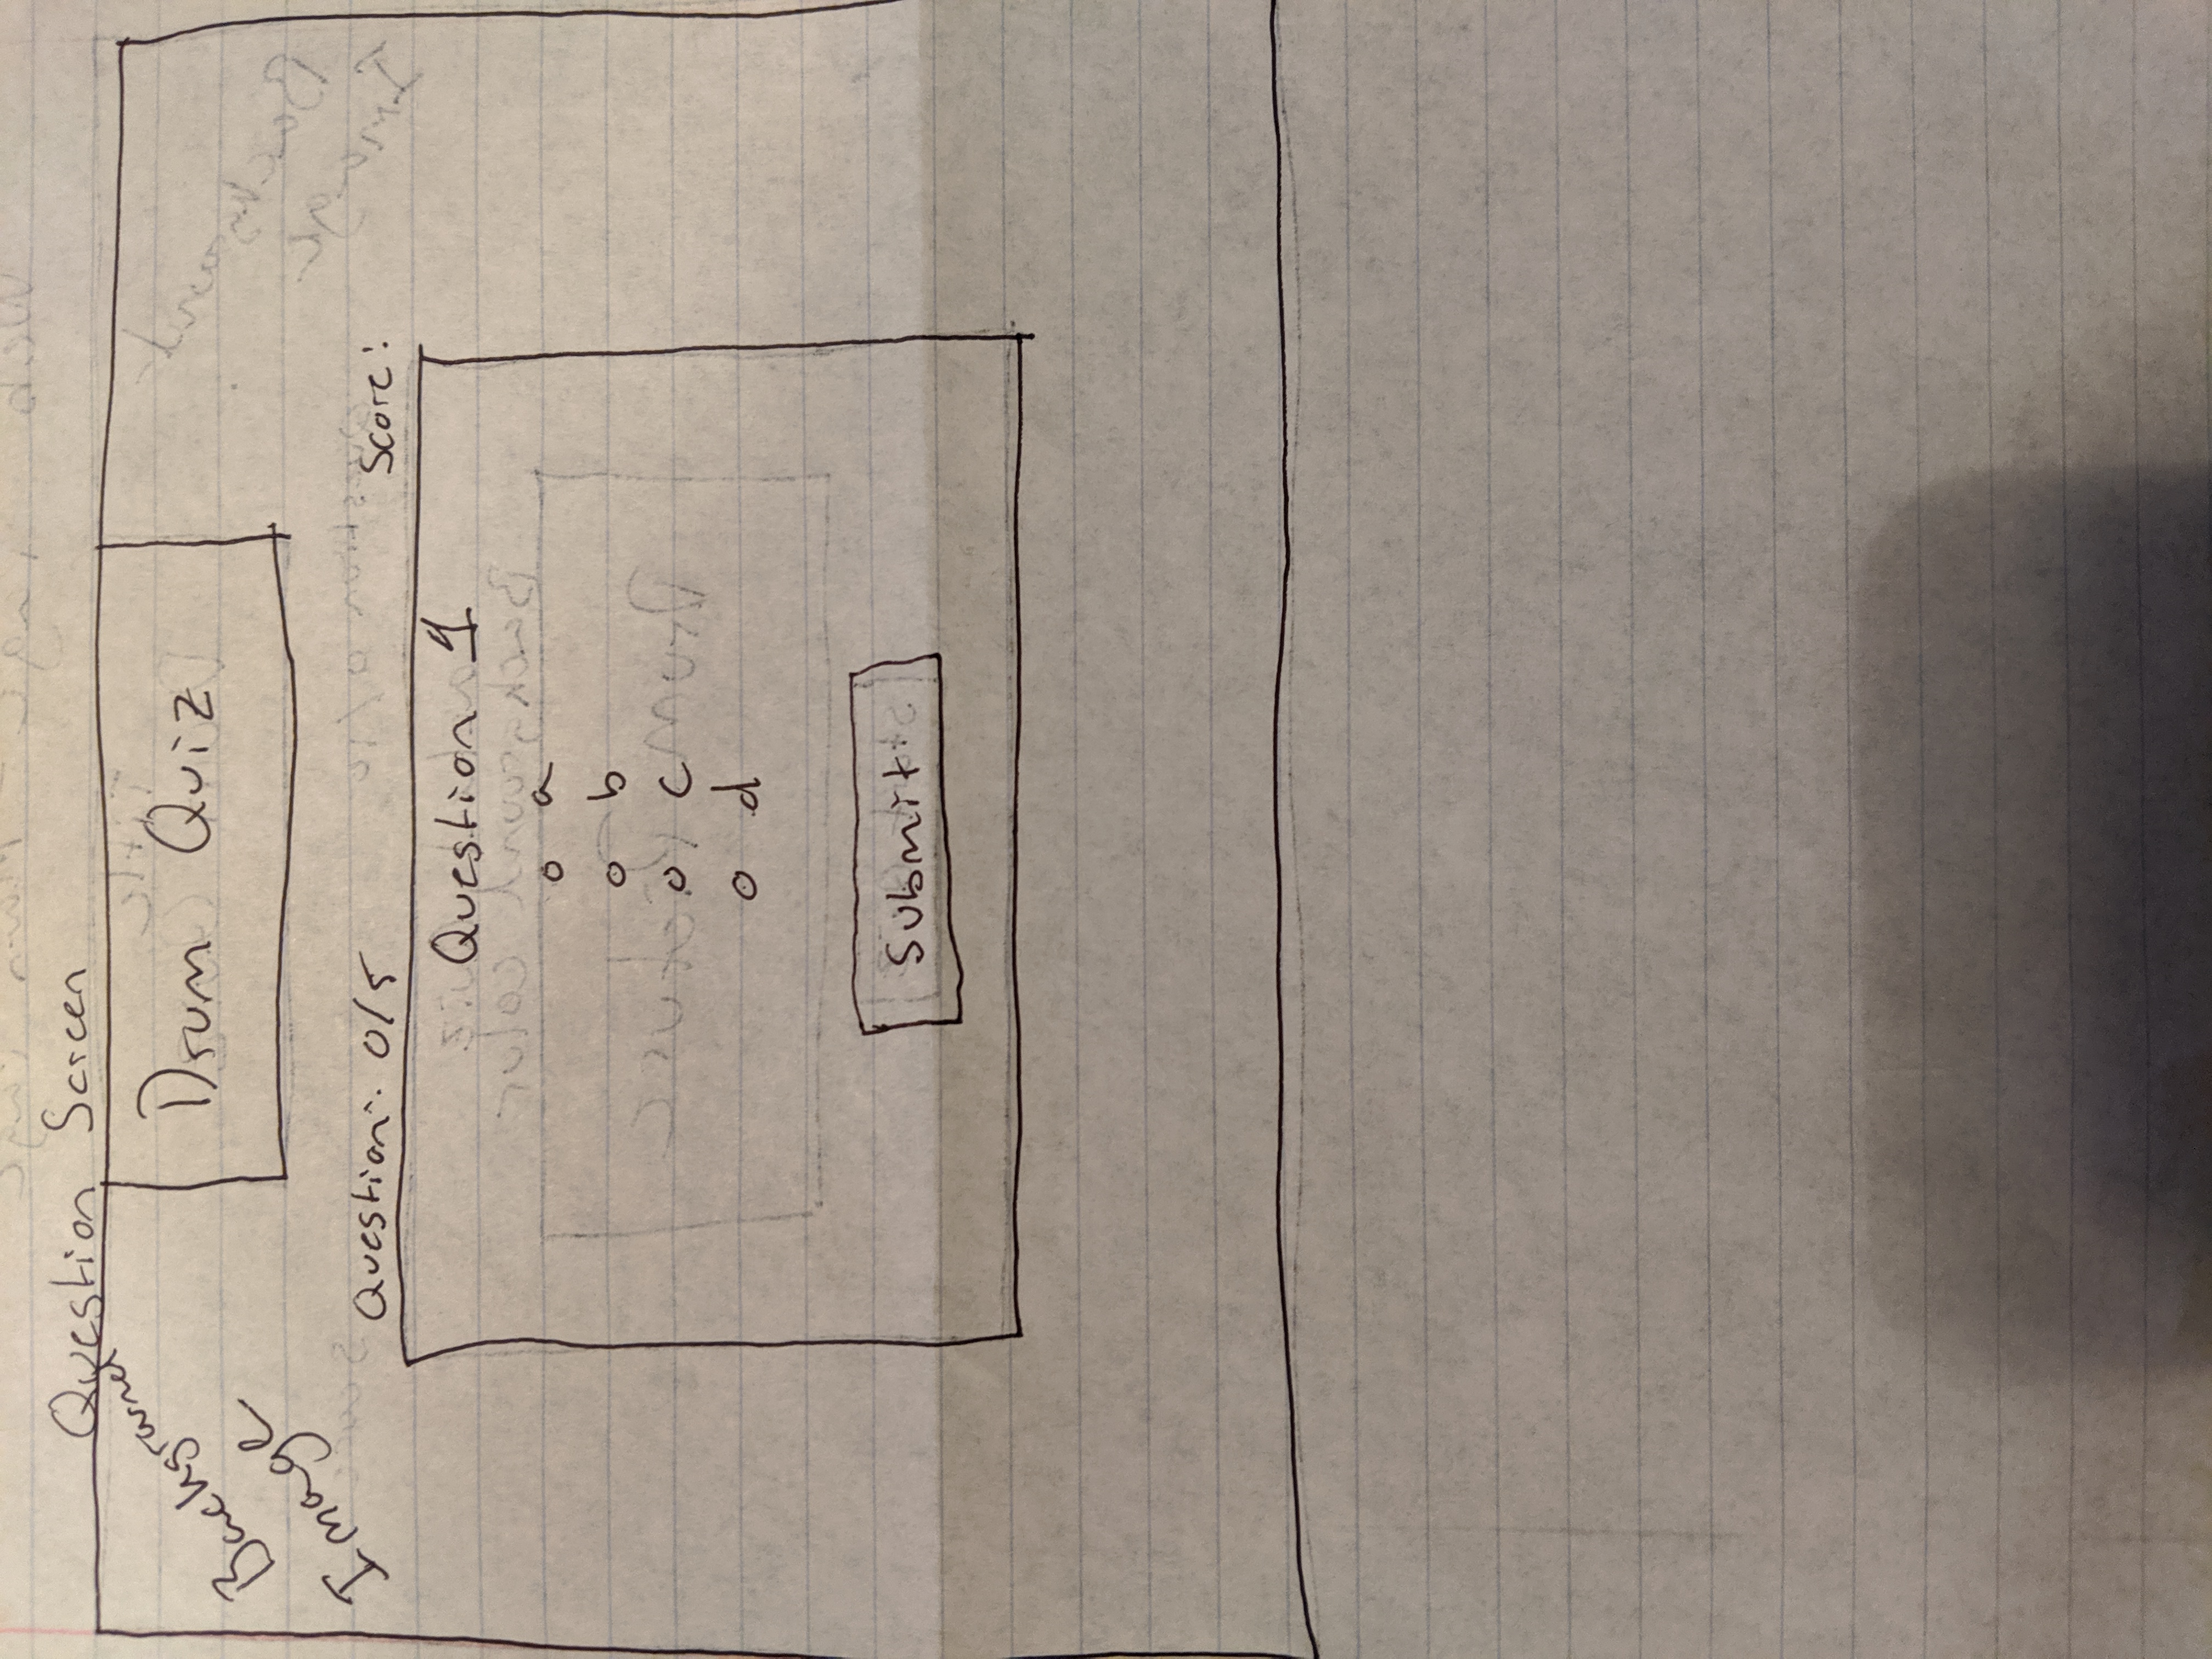 Question Screen
Background
Image
Drum Quiz
Question: 0/5 Score:
Question 1
o a
o b
o c
o d
Submit